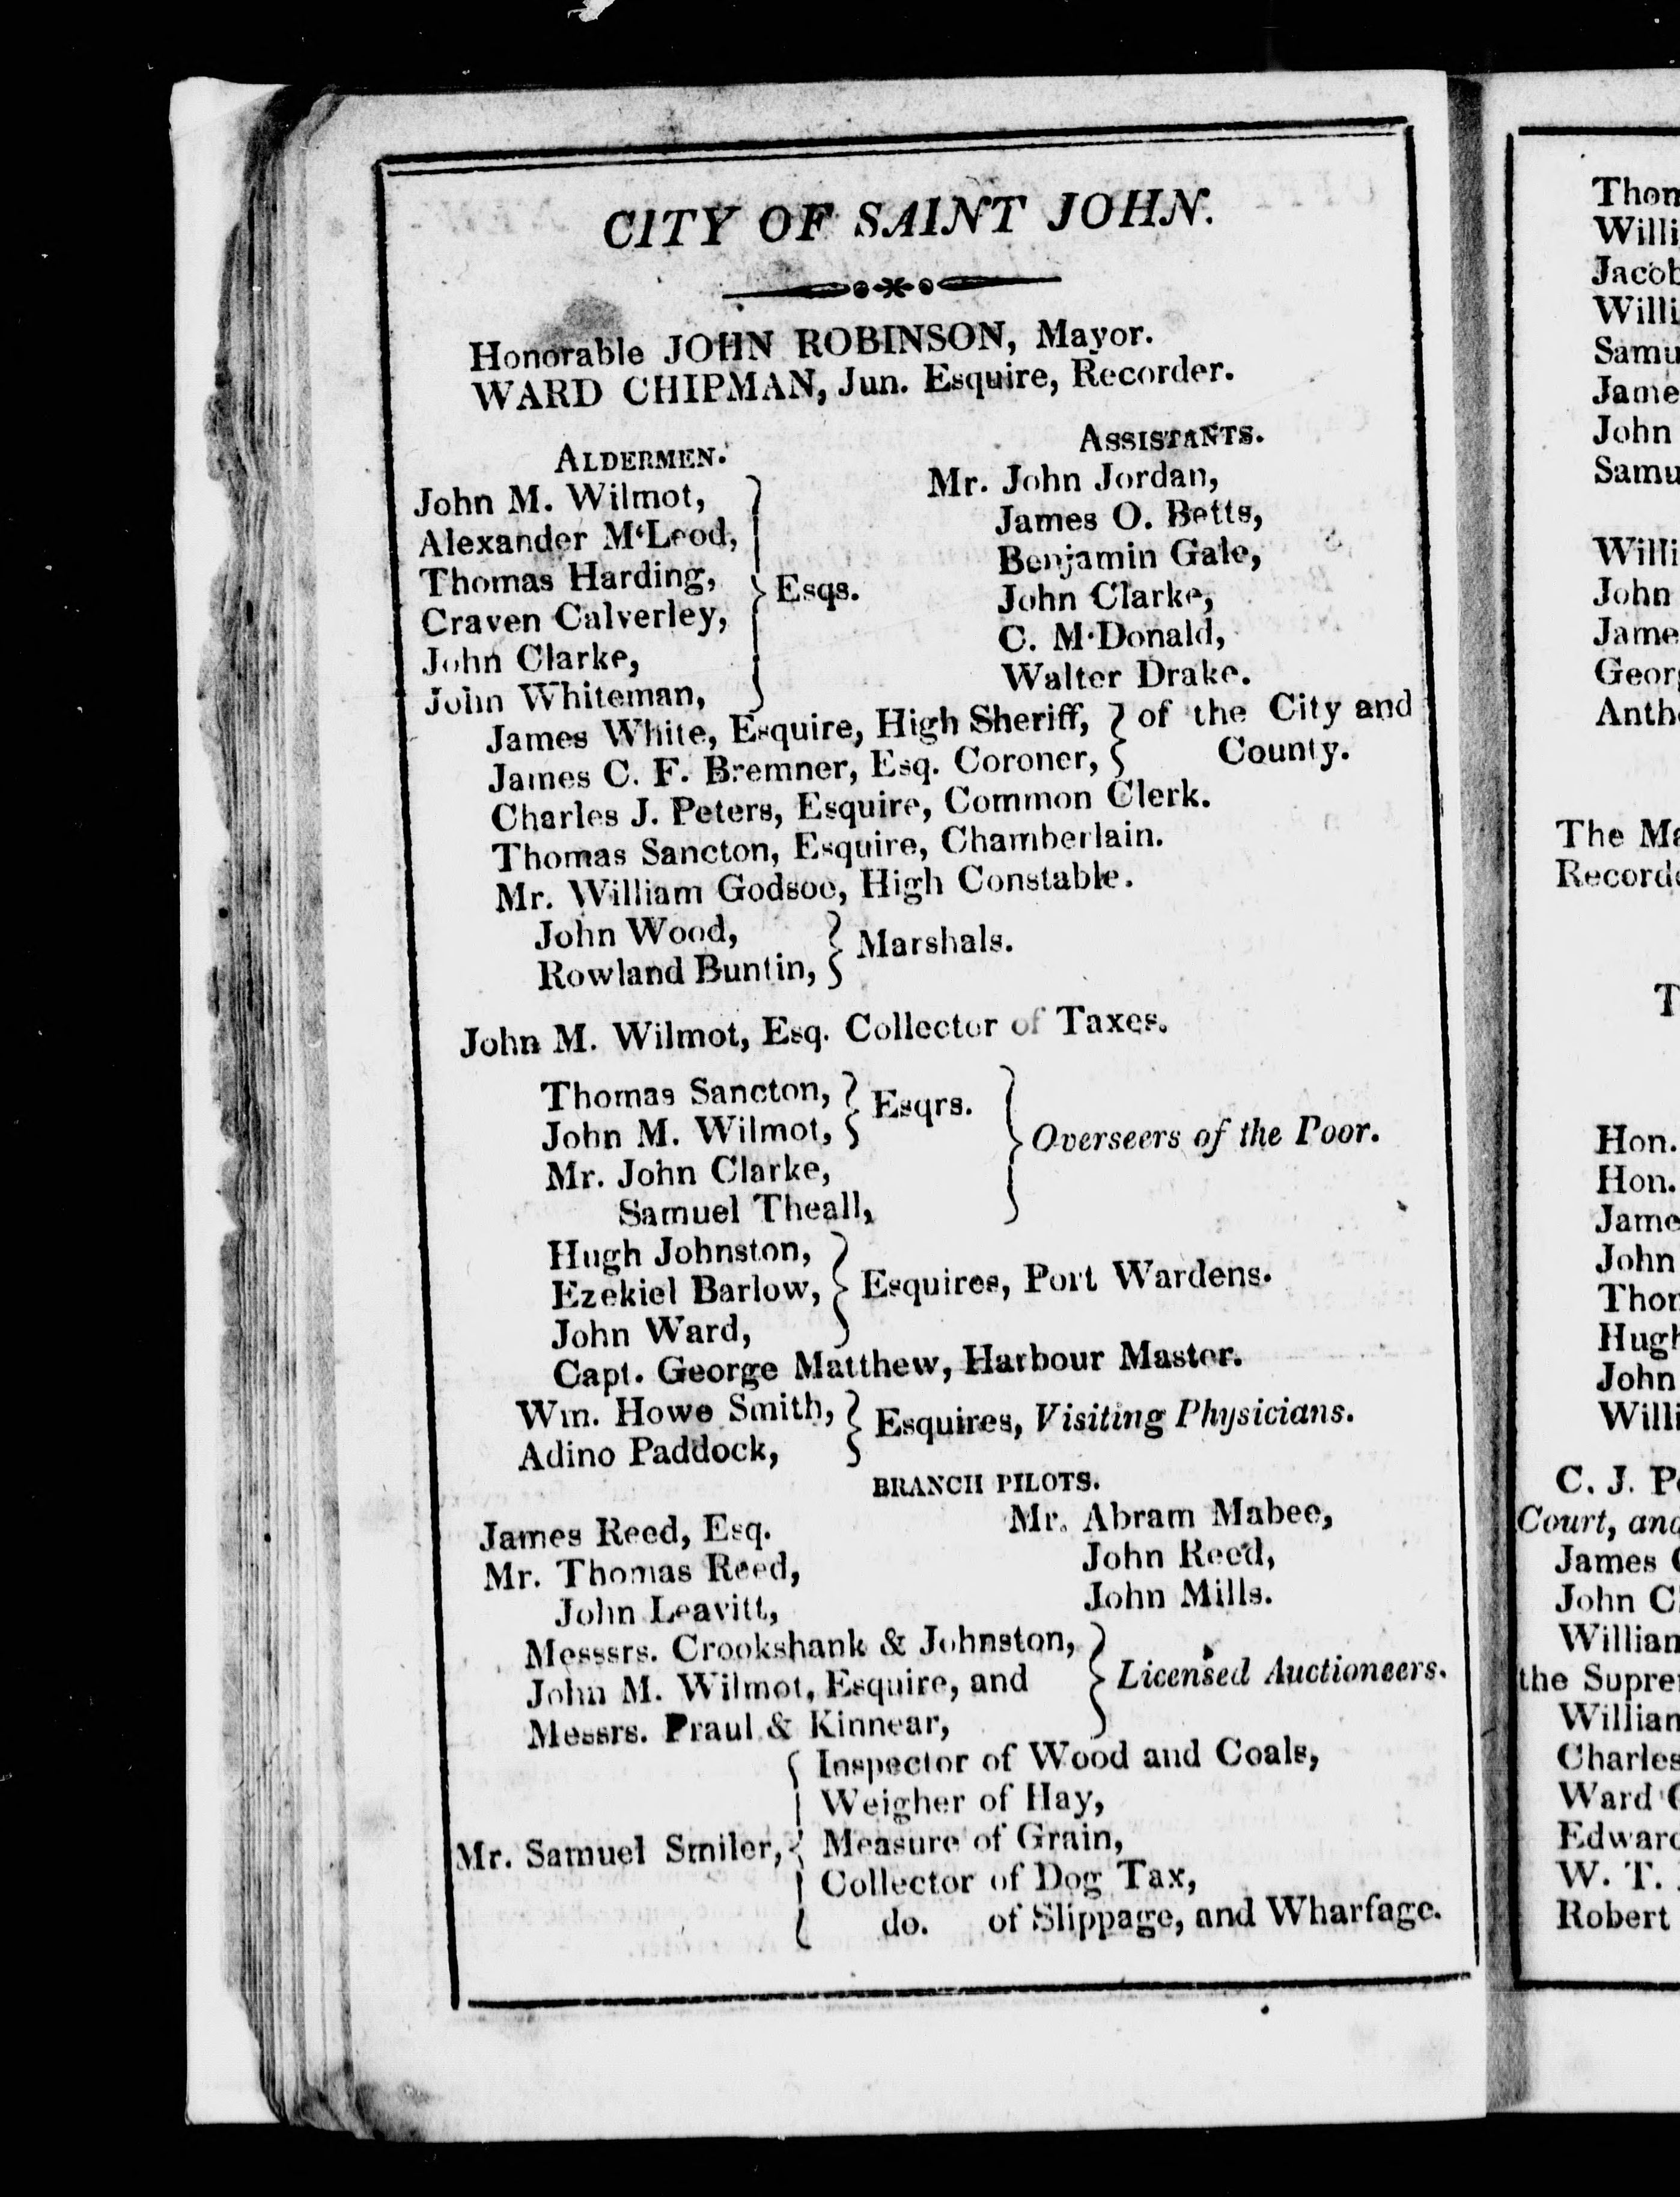 CITY OF SAINT JOHN.
Honorable JOHN ROBINSON, Mayor.
WARD CHIPMAN, Jun. Esquire, Recorder.
ALDERMEN.
John M. Wilmot,
Alexander M'Leod,
Thomas Harding,
Craven Calverley,
John Clarke,
John Whiteman,
Esqs.
ASSISTANTS.
Mr. John Jordan,
James O. Betts,
Benjamin Gale,
John Clarke,
C. M'Donald,
Walter Drake.
James White, Esquire, High Sheriff,
James C. F. Bremner, Esq. Coroner,
of the City and
County.
Charles J. Peters, Esquire, Common Clerk.
Thomas Sancton, Esquire, Chamberlain.
Mr. William Godsoe, High Constable.
John Wood,
Rowland Buntin,
Marshals.
John M. Wilmot, Esq. Collector of Taxes.
Thomas Sancton,
John M. Wilmot,
Esqrs.
Mr. John Clarke,
Samuel Theall,
Overseers of the Poor.
Hugh Johnston,
Ezekiel Barlow,
John Ward,
Esquires, Port Wardens.
Capt. George Matthew, Harbour Master.
Wm. Howe Smith,
Adino Paddock,
Esquires, Visiting Physicians.
BRANCH PILOTS.
James Reed, Esq.
Mr. Thomas Reed,
John Leavitt,
Mr. Abram Mabee,
John Reed,
John Mills.
Messsrs. Crookshank & Johnston,
John M. Wilmot, Esquire, and
Messrs. Praul & Kinnear,
Licensed Auctioneers.
Mr. Samuel Smiler,
Inspector of Wood and Coals,
Weigher of Hay,
Measure of Grain,
Collector of Dog Tax,
do. of Slippage, and Wharfage.
John
John
The
Hon.
Hon.
John
John
C. J.
Court,
James
John
the
Charles
Ward
W. T.
Robert